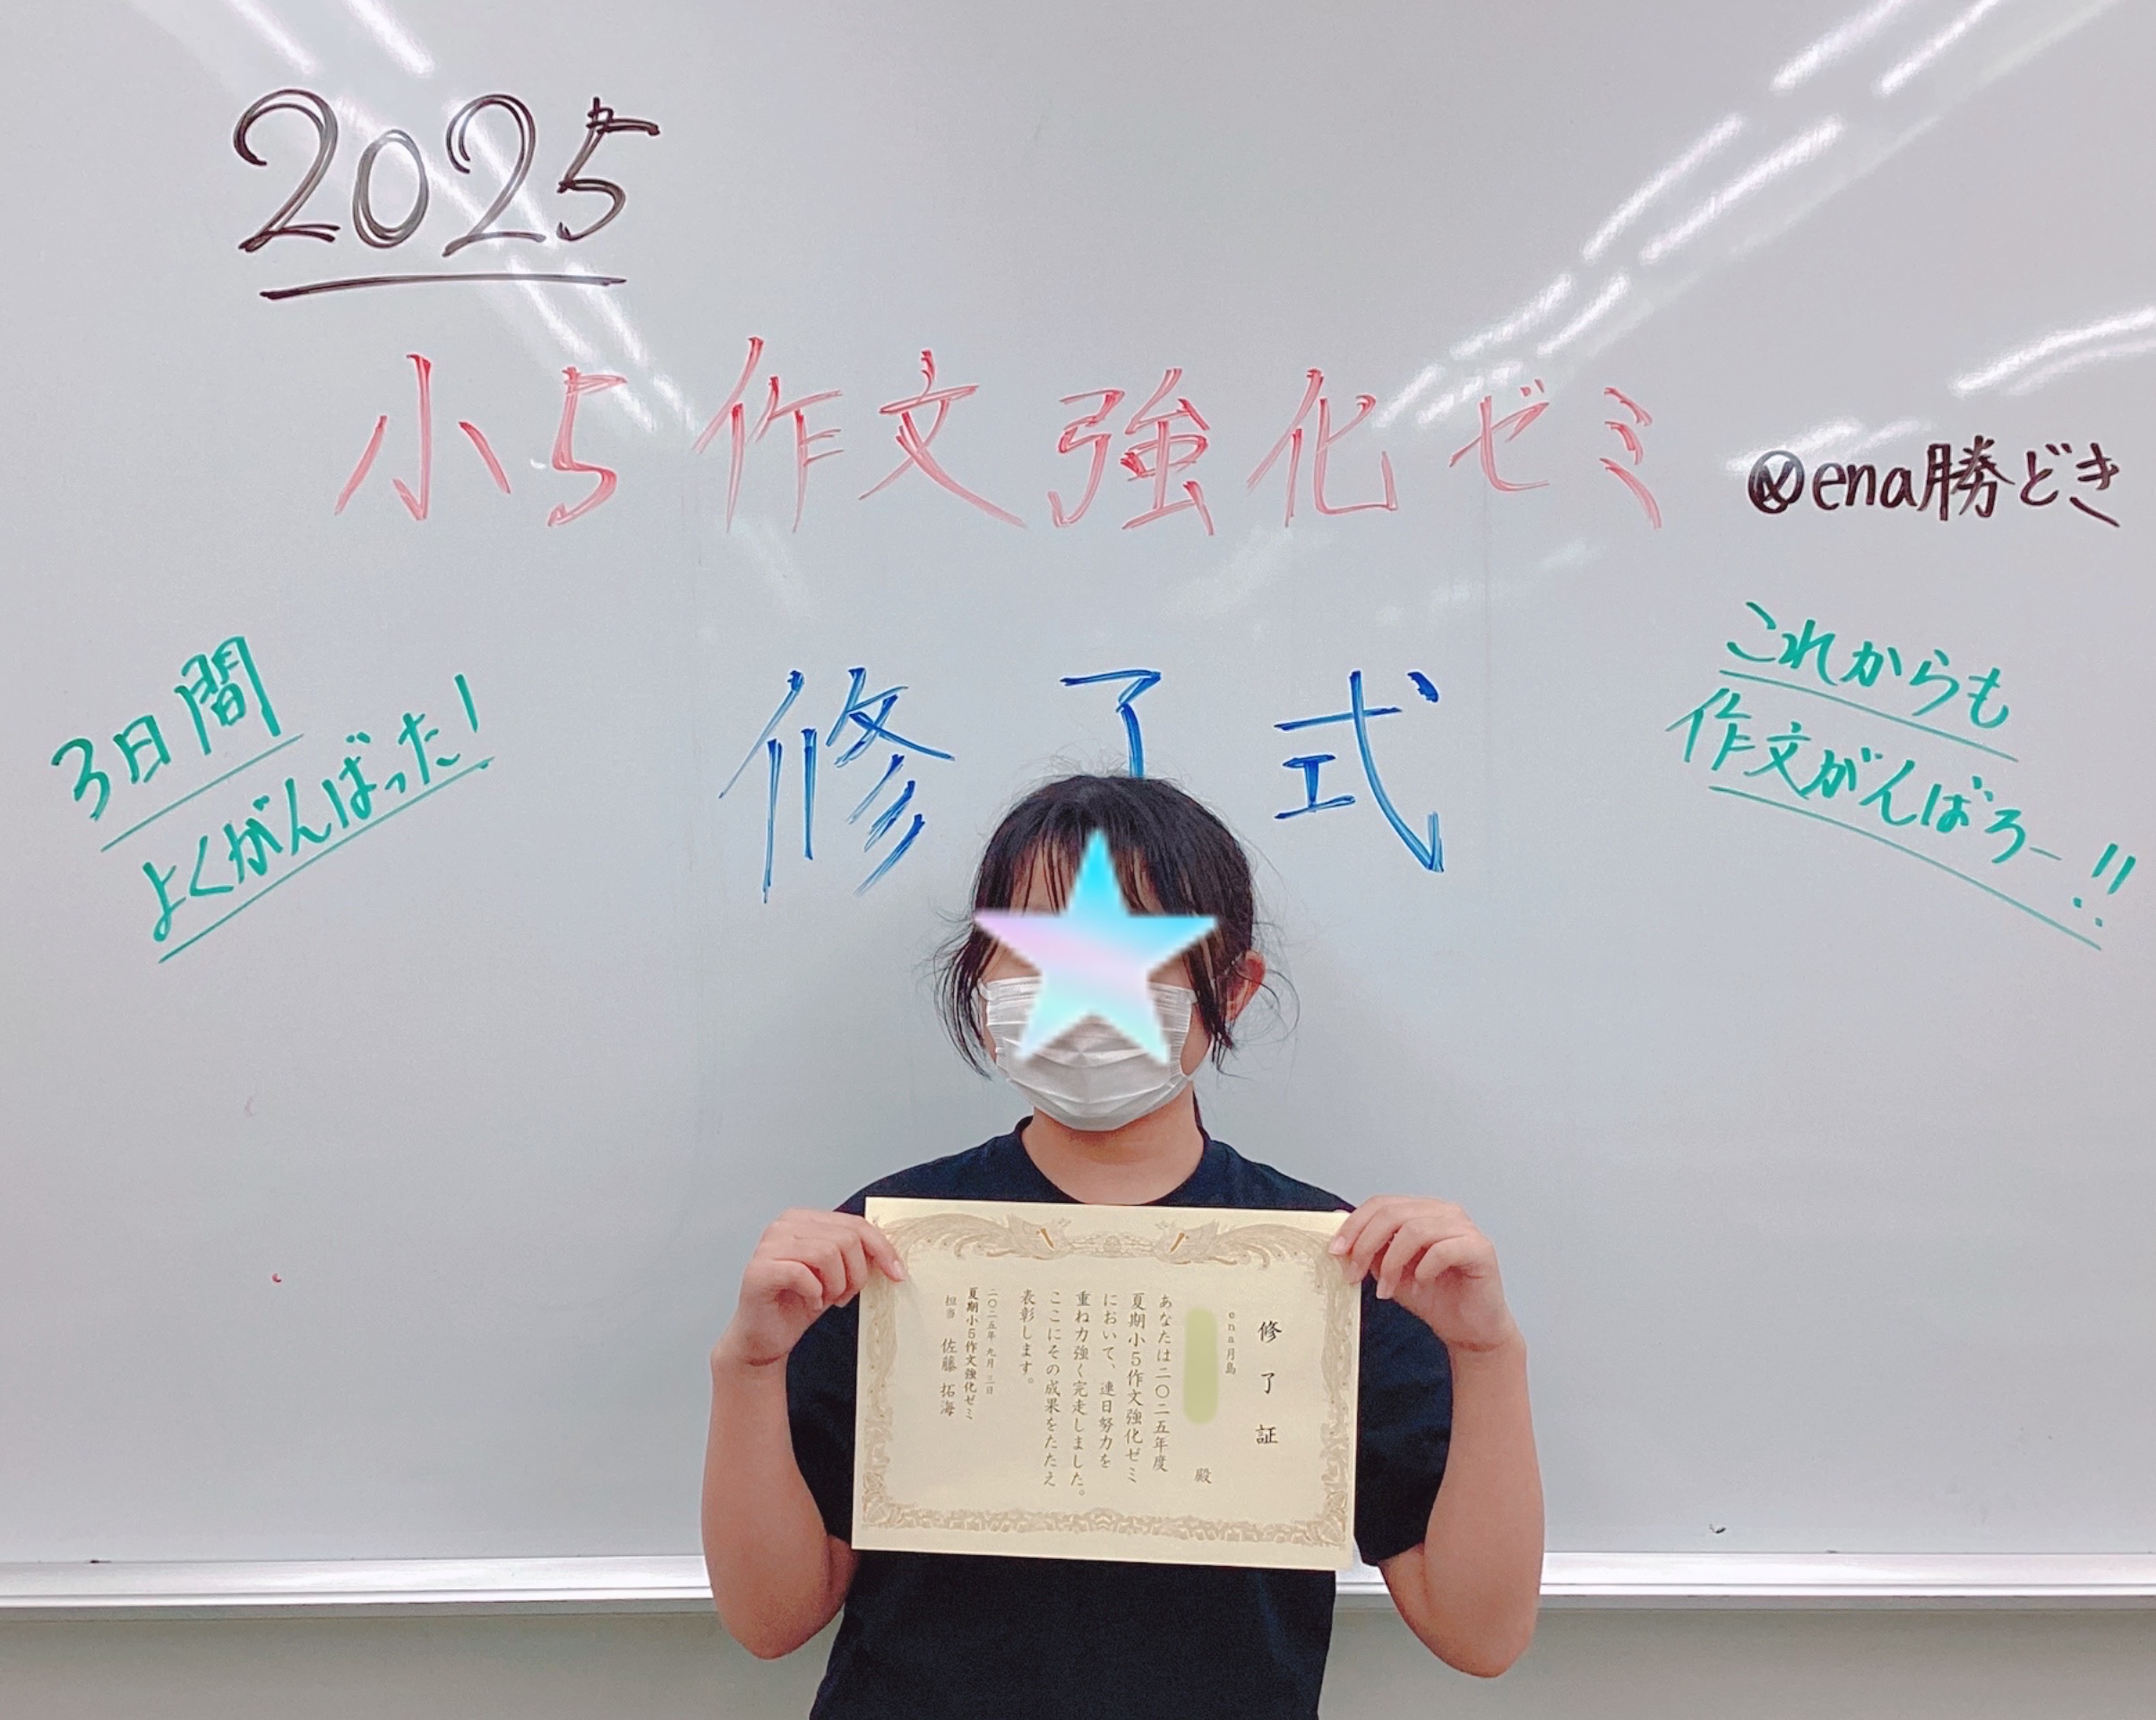 2025
小5 作文 強化ゼミ
@ena勝どき
3日間
よくがんばった!
修了式
これからも
作文がんばろー!!
修了証
ena月島
殿
あなたは二〇二五年度
夏期小5作文強化ゼミ
において、連日努力を
重ね力強く完走しました。
ここにその成果をたたえ
表彰します。
二〇二五年 九月 三日
夏期小5作文強化ゼミ
担当 佐藤 拓海